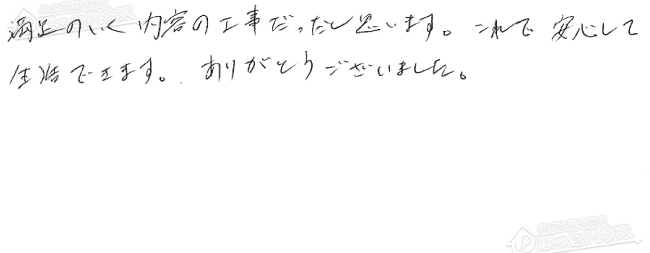 満足のいく内容の工事だったと思います。これで安心して
生活できます。ありがとうございました。